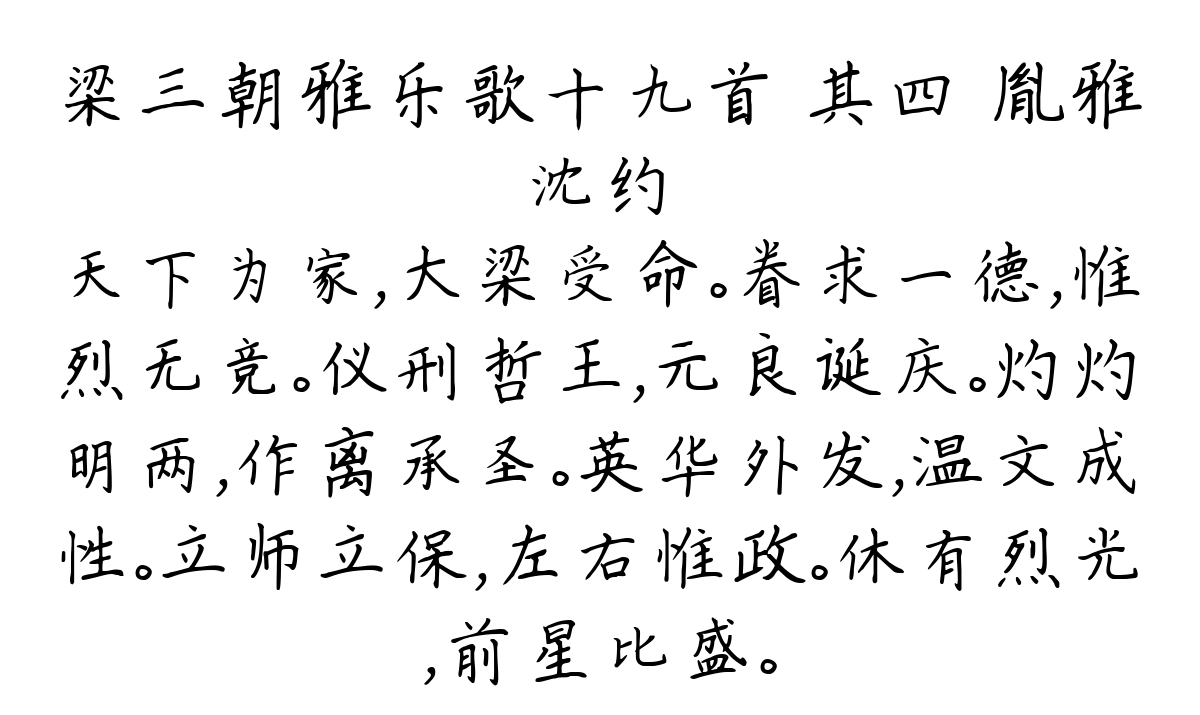 梁三朝雅乐歌十九首 其四 胤雅
沈约
天下为家,大梁受命。眷求一德,惟
烈无竞。仪刑哲王,元良诞庆。灼灼
明两,作离承圣。英华外发,温文成
性。立师立保,左右惟政。休有烈光
,前星比盛。